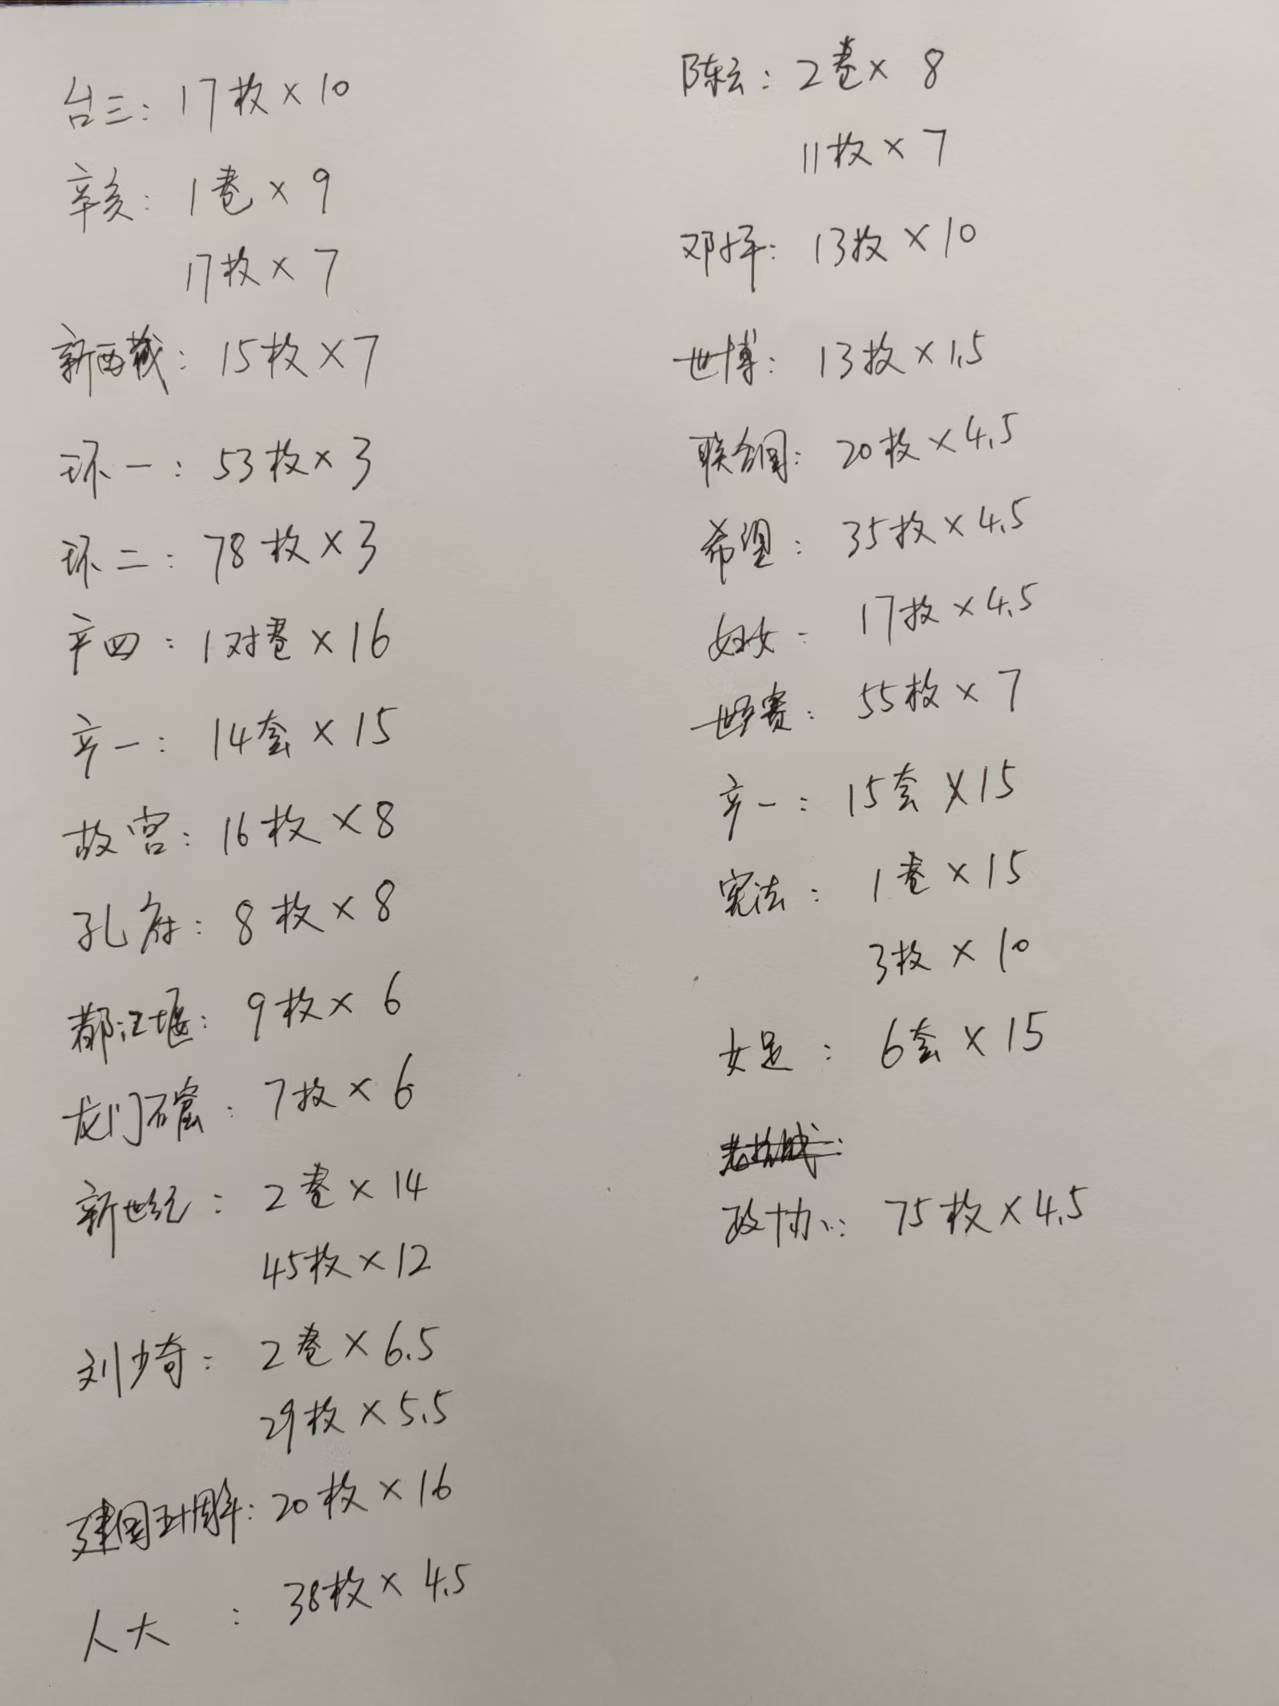 台三: 17枚×10
辛亥: 1卷×9
17枚×7
新西藏: 15枚×7
环一: 53枚×3
环二: 78枚×3
辛四: 1对卷×16
辛一: 14套×15
故宫: 16枚×8
孔府: 8枚×8
都江堰: 9枚×6
龙门石窟: 7枚×6
新世纪: 2卷×14
45枚×12
刘少奇: 2卷×6.5
29枚×5.5
建国五十周年: 20枚×16
人大: 38枚×4.5
陈云: 2卷×8
11枚×7
邓平: 13枚×10
世博: 13枚×1.5
联合国: 20枚×4.5
希望: 35枚×4.5
妇女: 17枚×4.5
世乒赛: 55枚×7
辛一: 15套×15
宪法: 1卷×15
3枚×10
女足: 6套×15
政协: 75枚×4.5